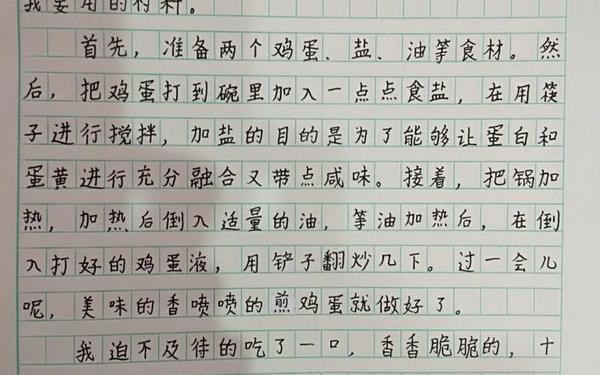 我要用的材料。
首先，准备两个鸡蛋、盐、油等食材。然
后，把鸡蛋打到碗里加入一点点食盐，在用筷
子进行搅拌，加盐的目的是为了能够让蛋白和
蛋黄进行充分融合又带点咸味。接着，把锅加
热，加热后倒入适量的油，等油加热后，在倒
入打好的鸡蛋液，用铲子翻炒几下。过一会儿
呢，美味的香喷喷的煎鸡蛋就做好了。
我迫不及待的吃了一口，香香脆脆的，十